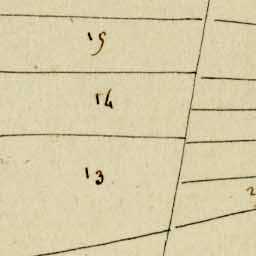 15
14
13
2